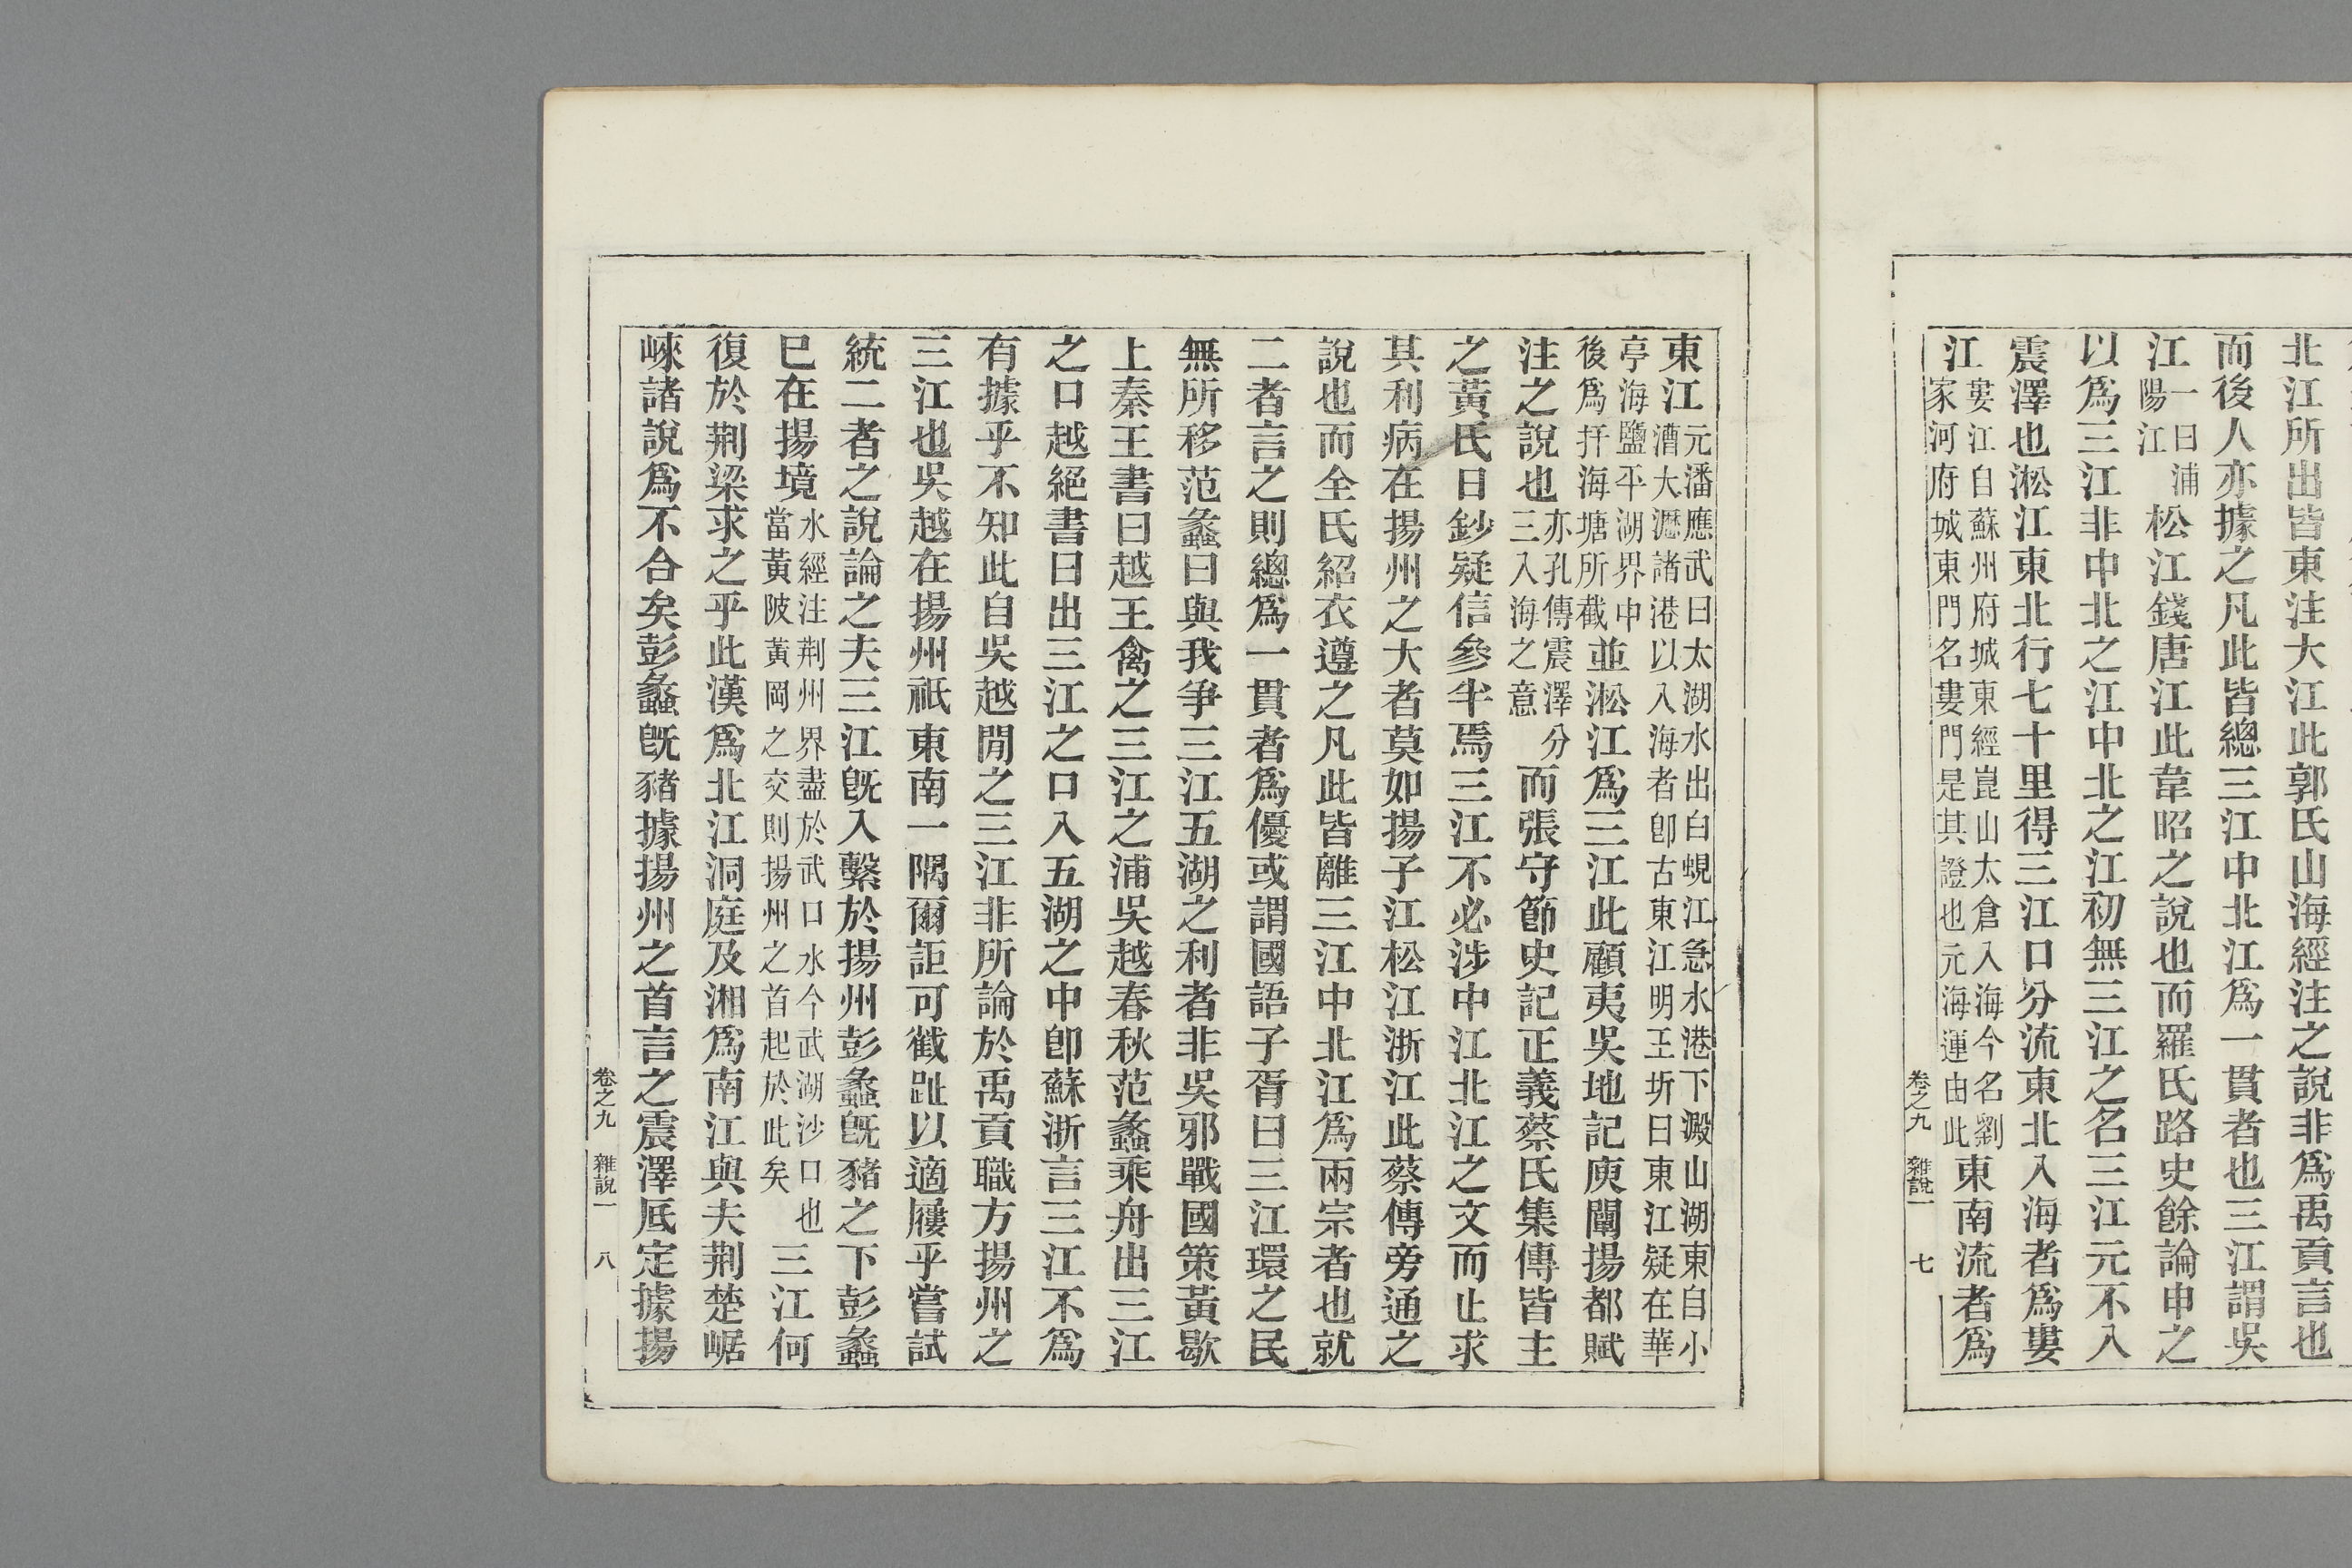 北江所出皆東注大江此郭氏山海經注之說非爲禹貢言也
而後人亦據之凡此皆總三江中北江爲一貫者也三江謂吳
江一曰浦陽江松江錢唐江此韋昭之說也而羅氏路史餘論申之
以爲三江非中北之江中北之江初無三江之名三江元不入
震澤也淞江東北行七十里得三江口分流東北入海者爲婁
江婁江自蘇州府城東經崑山太倉入海今名劉家河府城東門名婁門是其證也元海運由此東南流者爲
卷之九 雜說一 七
東江元潘應武曰太湖水出白蜆江急水港下澱山湖東自小漕大瀝諸港以入海者卽古東江明王圻曰東江疑在華
亭海鹽平湖界中後爲扞海塘所截並淞江爲三江此顧夷吳地記庾闡揚都賦
注之說也亦孔傳震澤分三入海之意而張守節史記正義蔡氏集傳皆主
之黃氏日鈔疑信參半焉三江不必涉中江北江之文而止求
其利病在揚州之大者莫如揚子江松江浙江此蔡傳旁通之
說也而全氏紹衣遵之凡此皆離三江中北江爲兩宗者也就
二者言之則總爲一貫者爲優或謂國語子胥曰三江環之民
無所移范蠡曰與我爭三江五湖之利者非吳邪戰國策黃歇
上秦王書曰越王禽之三江之浦吳越春秋范蠡乘舟出三江
之口越絕書曰出三江之口入五湖之中卽蘇浙言三江不爲
有據乎不知此自吳越閒之三江非所論於禹貢職方揚州之
三江也吳越在揚州祇東南一隅爾詎可戳趾以適屨乎嘗試
統二者之說論之夫三江旣入繫於揚州彭蠡旣豬之下彭蠡
巳在揚境水經注荆州界盡於武口水今武湖沙口也當黃陂黃岡之交則揚州之首起於此矣三江何
復於荆梁求之乎此漢爲北江洞庭及湘爲南江與夫荆楚崌
崍諸說爲不合矣彭蠡旣豬據揚州之首言之震澤厎定據揚
卷之九 雜說一 八